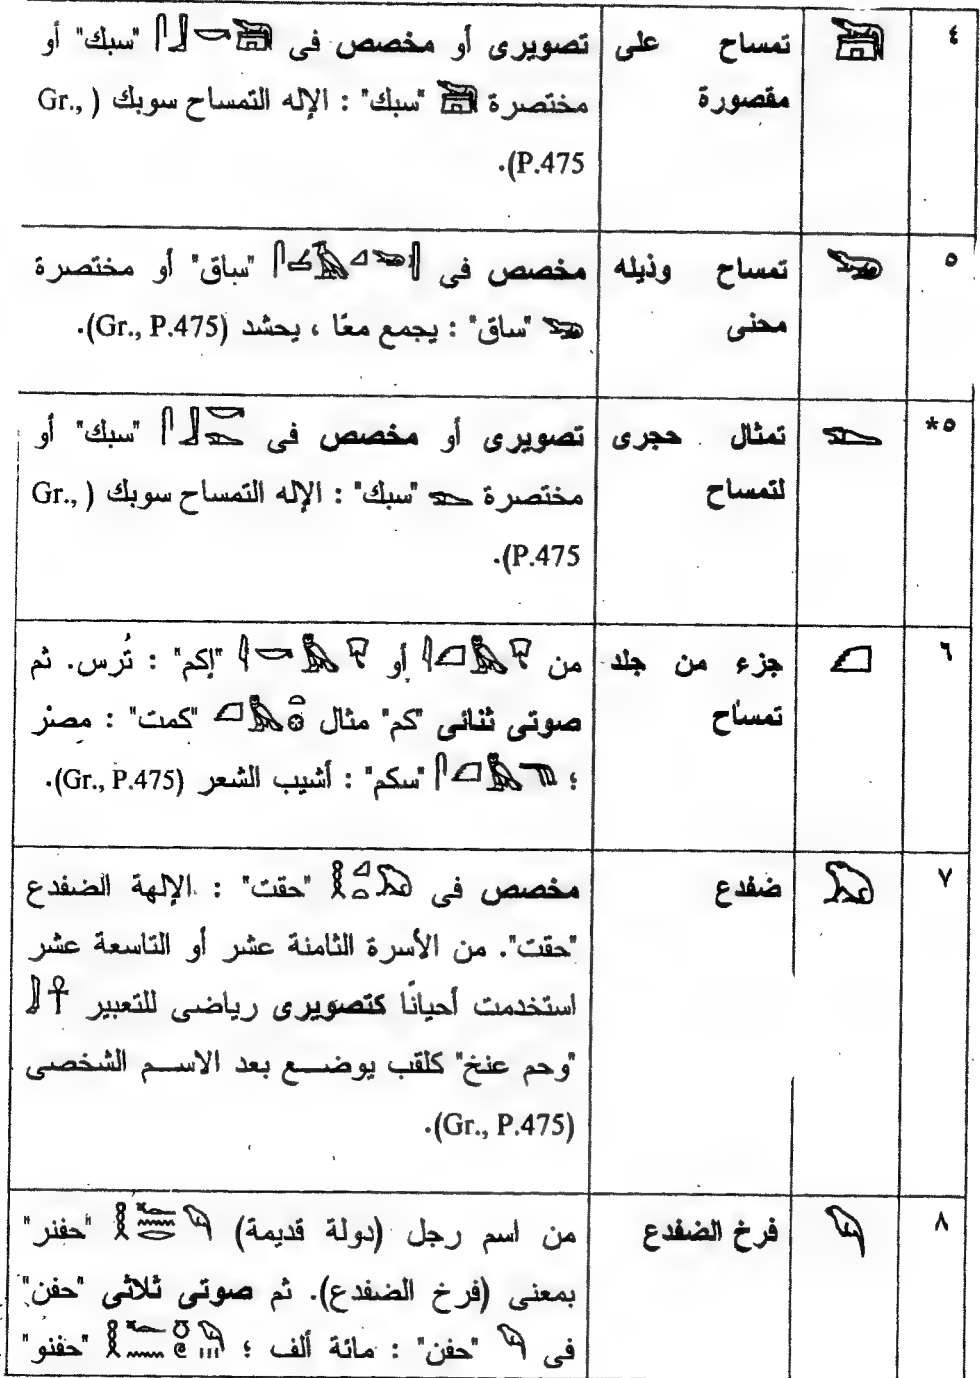 ٤ تمساح على تصويرى أو مخصص فى 𓆋𓎡𓃀𓋴 "سبك" أو
مقصورة مختصرة 𓆋 "سبك" : الإله التمساح سوبك (Gr.,
P.475).
٥ 𓆌 تمساح وذيله مخصص فى "ساق" أو مختصرة
محنى 𓆌 "ساق" : يجمع معًا ، يحشد (Gr., P.475).
*٥ تمثال حجرى تصويرى أو مخصص فى "سبك" أو
لتمساح مختصرة "سبك" : الإله التمساح سوبك (Gr.,
P.475).
٦ 𓆎 جزء من جلد من أو "إكم" : تُرس. ثم
تمساح صوتى ثنائى "كم" مثال 𓆎𓅓𓏏𓊖 "كمت" : مصر
؛ "سكم" : أشيب الشعر (Gr., P.475).
٧ 𓆏 ضفدع مخصص فى 𓎛𓈎𓏏𓆏 "حقت" : الإلهة الضفدع
"حقت". من الأسرة الثامنة عشر أو التاسعة عشر
استخدمت أحيانًا كتصويرى رياضى للتعبير 𓋹
"وحم عنخ" كلقب يوضع بعد الاسم الشخصى
(Gr., P.475).
٨ 𓆐 فرخ الضفدع من اسم رجل (دولة قديمة) "حفنر"
بمعنى (فرخ الضفدع). ثم صوتى ثلاثى "حفن"
فى 𓆐 "حفن" : مائة ألف ؛ "حفنو"